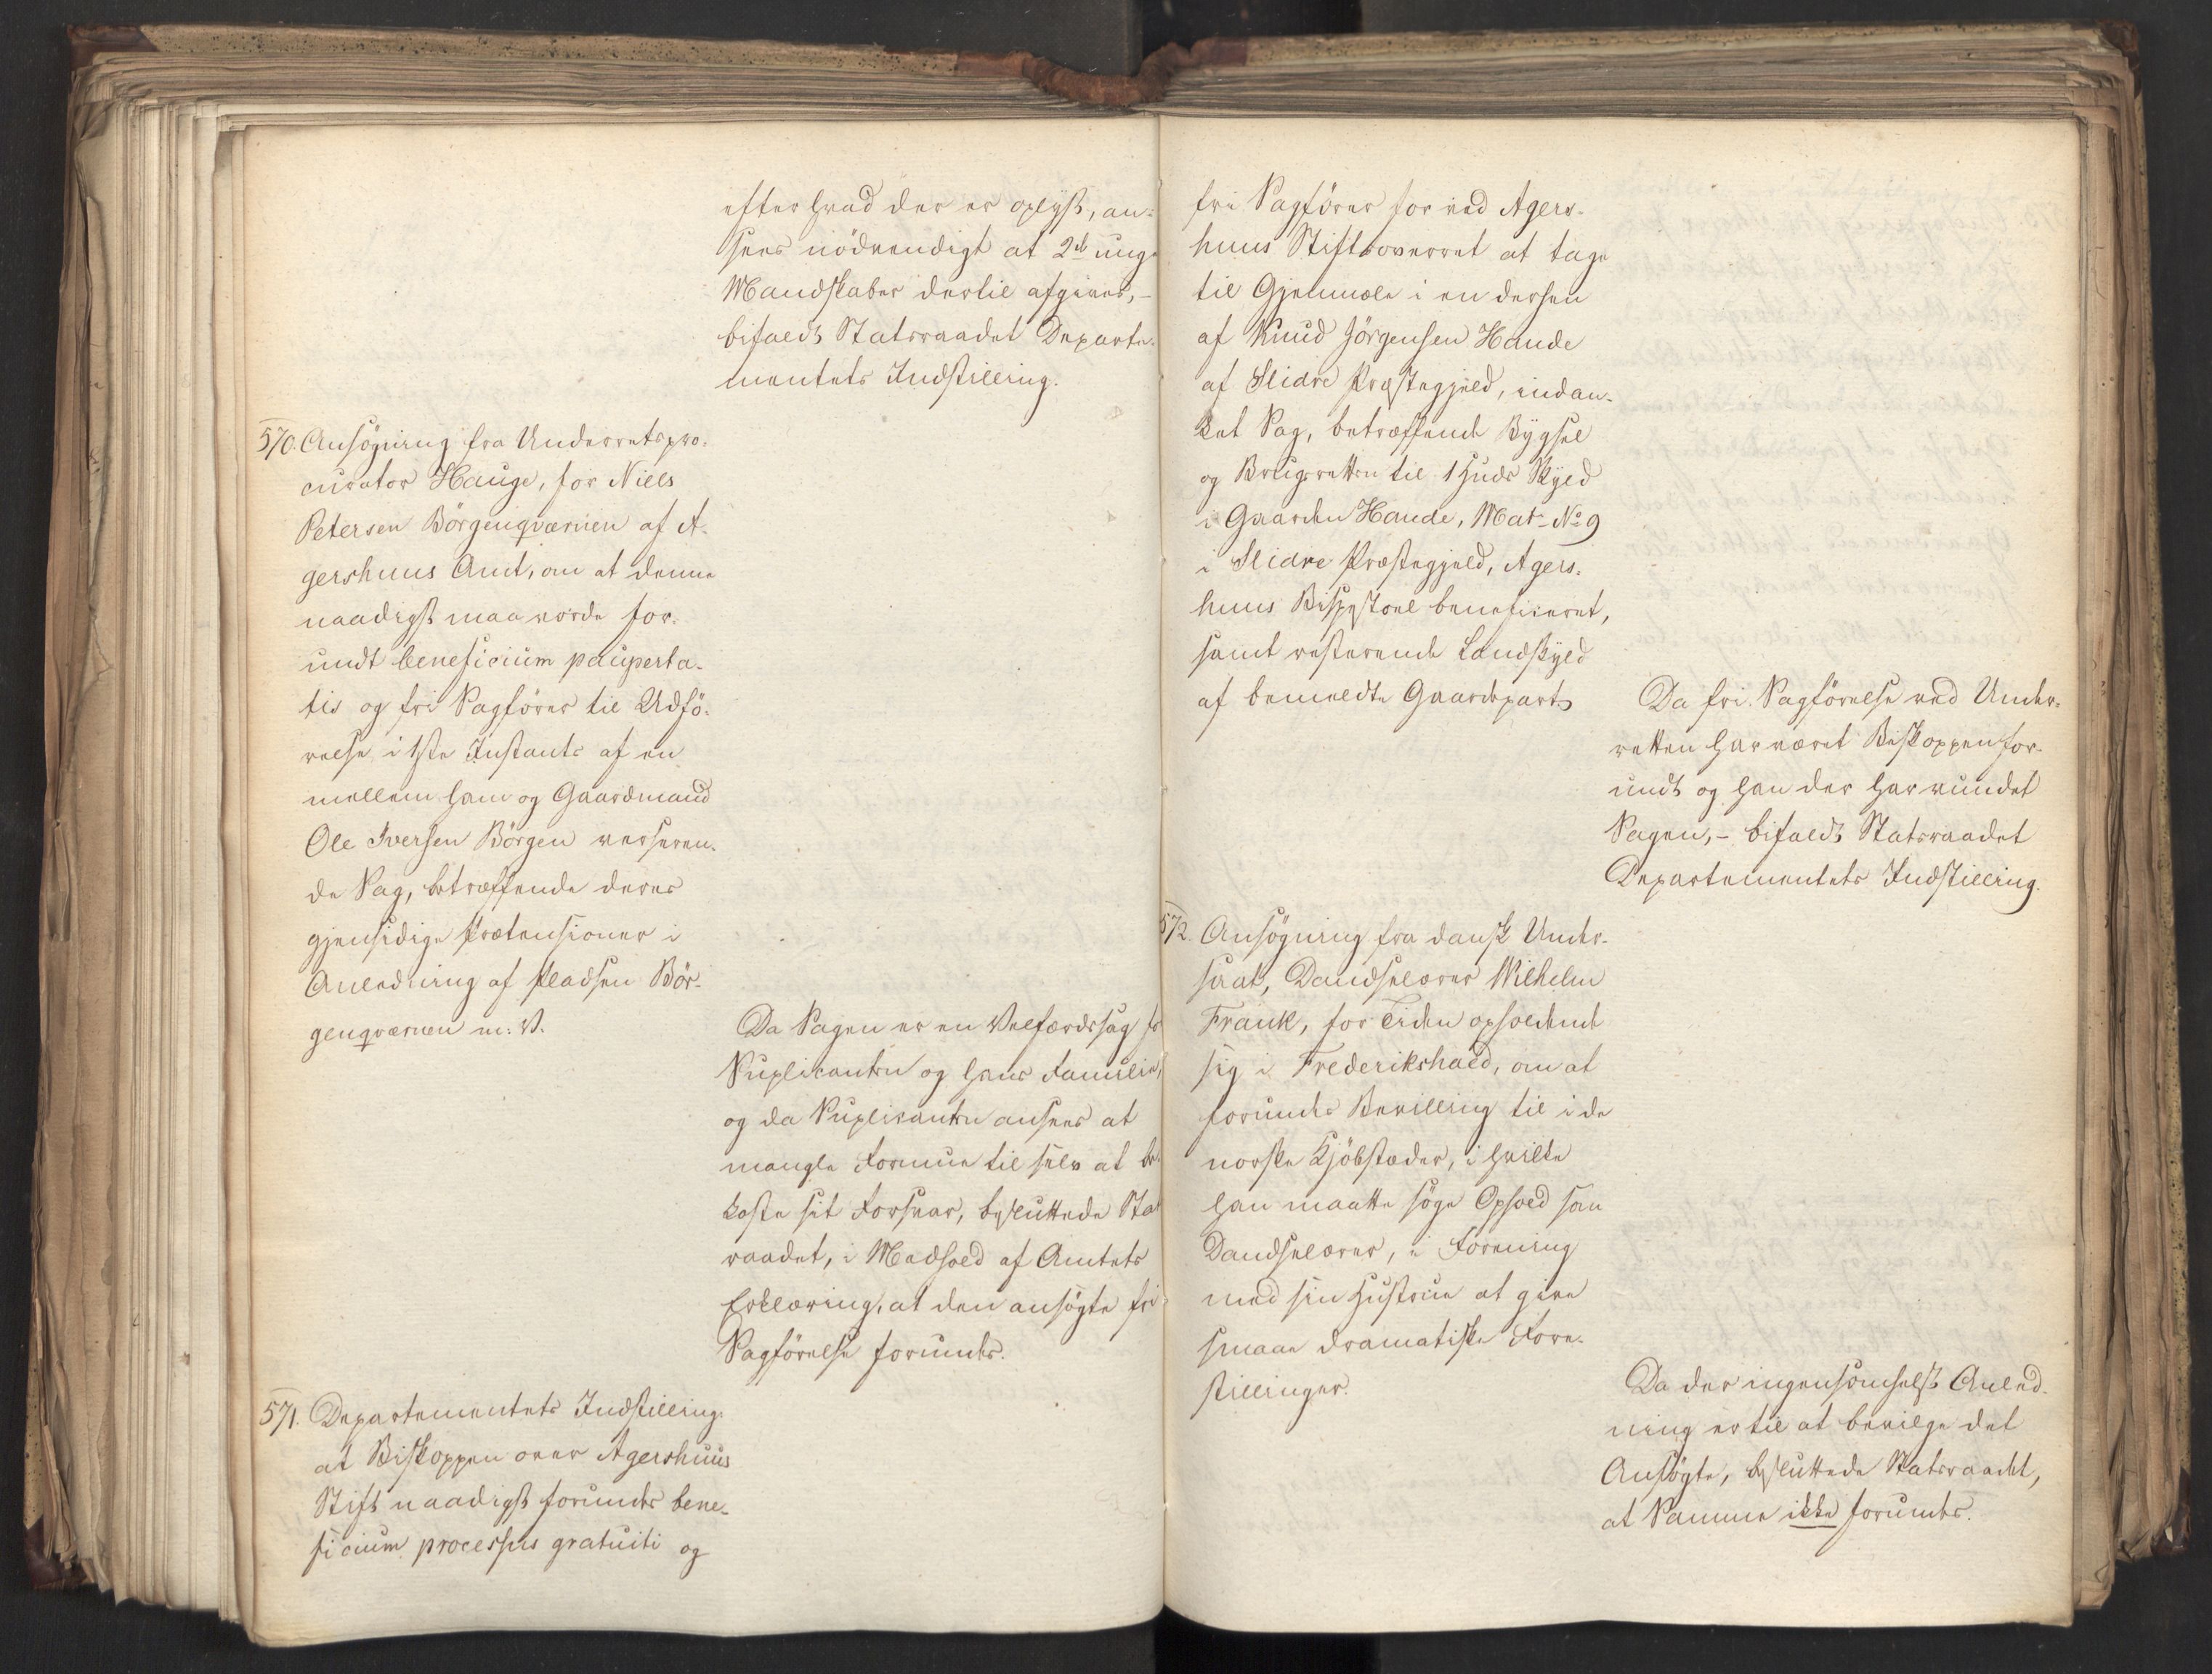 efter hvad der er oplyst, an-
sees nödvendigt at 2de unge
Mandskaber dertil afgives, -
bifaldt Statsraadet Departe-
mentets Indstilling.
570. Ansögning fra Underretspro-
curator Hauge, for Niels
Petersen Börgenqværnen af A-
gershuus Amt, om at denne
naadigst maa vorde for-
undt beneficium pauperta-
tis og fri Sagförer til Udfö-
relse i 1ste Instants af en
mellem ham og Gaardmand
Ole Iversen Börgen verseren-
de Sag, betræffende deres
gjensidige Prætensioner i
Anledning af Pladsen Bör-
genqværnen m: V.
Da Sagen er en Velfærdssag for
Suplicanten og hans Familie,
og da Suplicanten ansees at
mangle Formue til selv at be-
koste sit Forsvar, besluttede Stats
raadet, i Medhold af Amtets
Erklæring, at den ansögte fri
Sagförelse forundes.
571. Departementets Indstilling
at Biskoppen over Agershuus
Stift naadigst forundes bene-
ficium processus gratuiti og
fri Sagförer for ved Agers-
huus Stiftsoverret at tage
til Gjenmæle i en dersen
af Knud Jörgensen Hande
af Slidre Præstegjeld, indan-
ket Sag, betræffende Bygsel
og Brugsretten til 1 Huds Skyld
i Gaarden Hande, Mat- No 9
i Slidre Præstegjeld, Agers-
huus Bispestoel beneficeret,
samt resterende Landskyld
af bemeldte Gaardepart
Da fri Sagförelse ved Under-
retten har været Biskoppen for-
undt og han der har vundet
Sagen, - bifaldt Statsraadet
Departementets Indstilling.
572. Ansögning fra dansk Under-
saat, Dandselærer Wilhelm
Frank, for Tiden opholdende
sig i Frederikshald, om at
forundes Bevilling til i de
norske Kjöbstæder, i hvilke
han maatte söge Ophold som
Dandselærer, i Forening
med sin Hustrue at give
smaae dramatiske Fore-
stillinger.
Da der ingensomhelst Anled-
ning er til at bevilge det
Ansögte, besluttede Statsraadet,
at Samme ikke forundes.